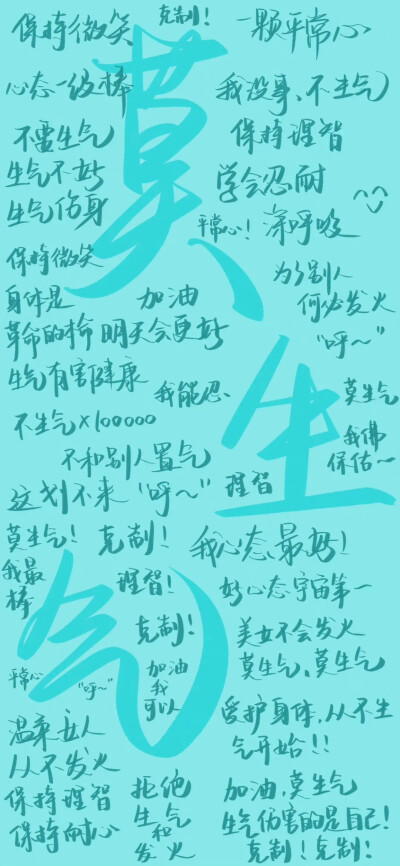 莫生气
克制！
保持微笑
一颗平常心
心态一级棒
我没事、不生气
不需生气
保持理智
生气不好
学会忍耐
生气伤身
平常心！
深呼吸
保持微笑
为了别人
何必发火
身体是
革命的本命
加油
明天会更好
“呼～”
生气有害健康
我能忍、
莫生气
不生气×100000
我佛
保佑～
不和别人置气
这划不来
“呼～”
理智
莫生气！
克制！
我心态最好！
我最
棒
理智！
好心态宇宙第一
克制！
美女不会发火
莫生气、莫生气
平常心
“呼～”
加油
我
可以
爱护身体，从不生
气开始！！
温柔女人
从不发火
保持理智
保持耐心
拒绝
生气
和
发火
加油，莫生气
生气伤害的是自己！
克制！克制！